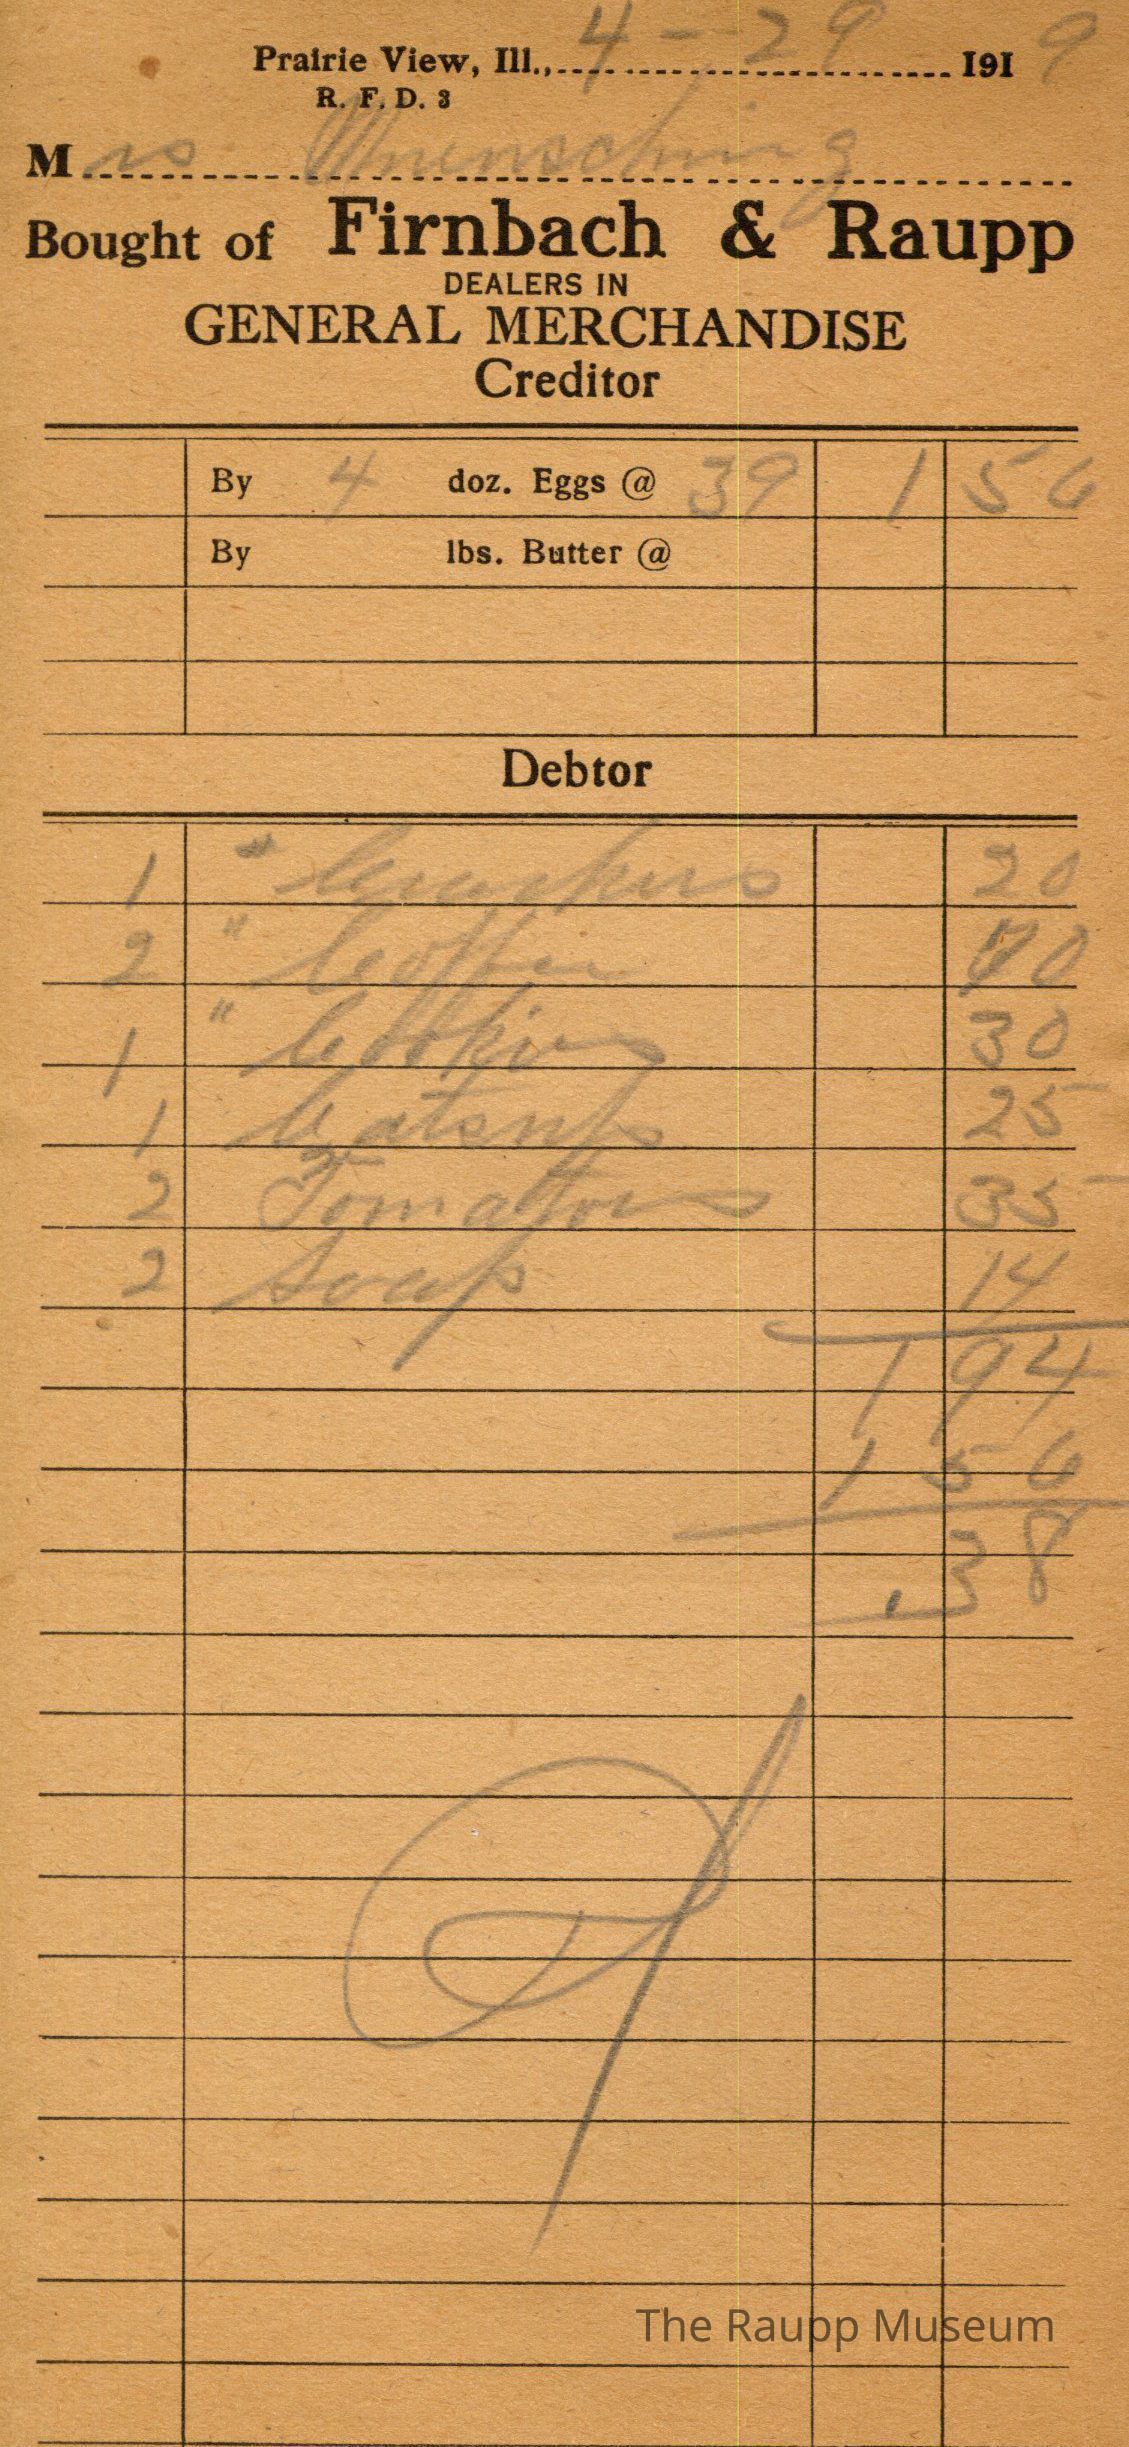 Prairie View, Ill., 4-29 1919
R. F. D. 3
Mrs Muensching
Bought of Firnbach & Raupp
DEALERS IN
GENERAL MERCHANDISE
Creditor
By 4 doz. Eggs @ 39 1 56
By lbs. Butter @
Debtor
1 " Crackers 20
2 " Coffee 70
1 " Cookies 30
1 Catsup 25
2 Tomatoes 35
2 Soap 14
1 94
1 56
.38
The Raupp Museum